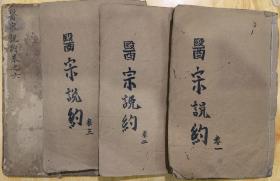 醫宗說約
卷一
醫宗說約
卷二
醫宗說約
卷三